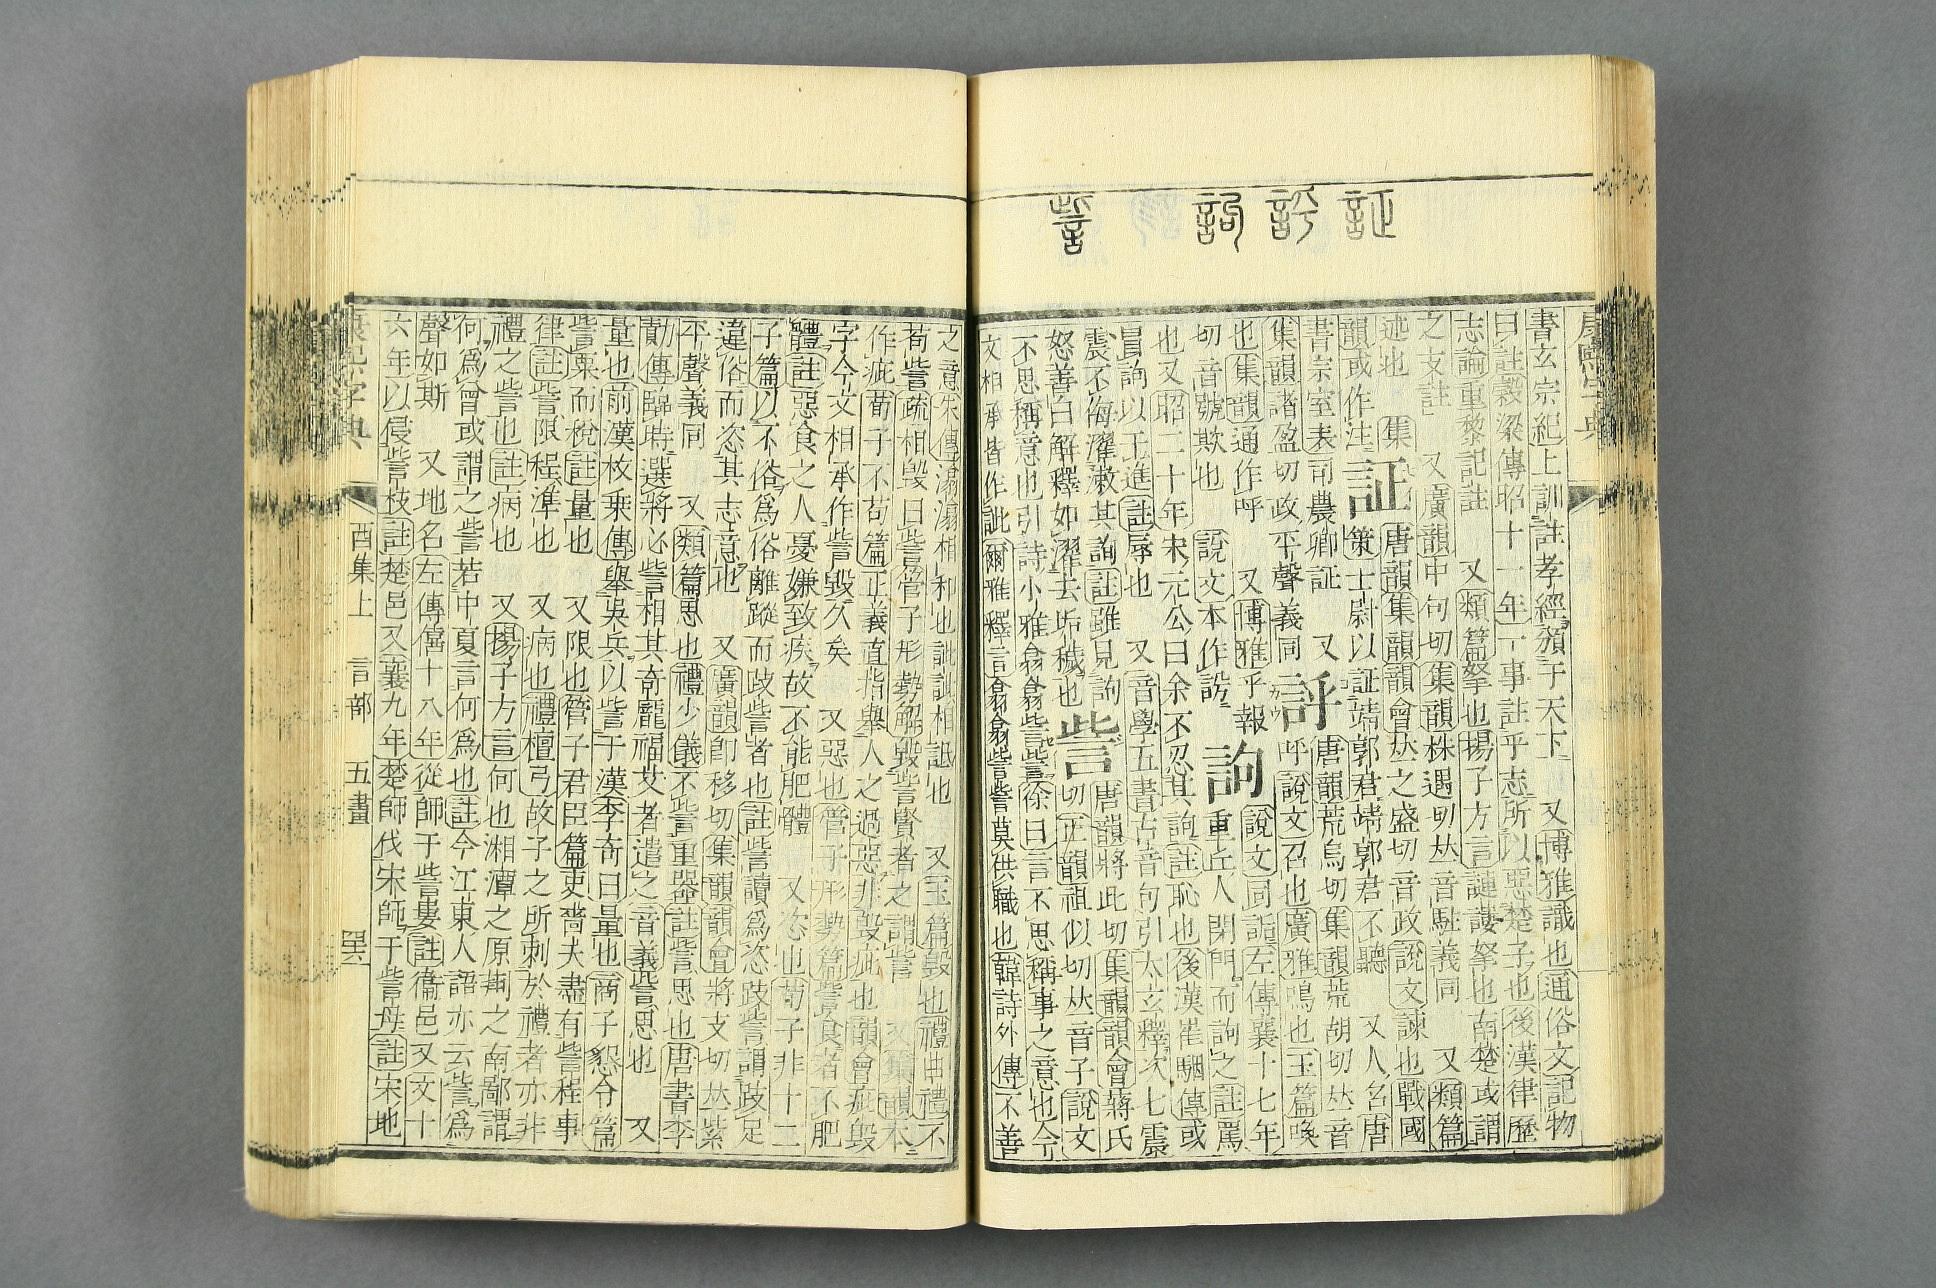 証 評 訽 訾
書玄宗紀上訓註孝經頒于天下 又博雅識也通俗文記物
曰註穀梁傳昭十一年一事註乎志所以惡楚子也後漢律歷
志論重黎記註 又類篇拏也揚子方言謰謱拏也南楚或謂
之支註 又廣韻中句切集韻株遇切𠀤音駐義同 又類篇
述也 集韻或作注
証 唐韻集韻韻會𠀤之盛切音政說文諫也戰國策士尉以証靖郭君靖郭君不聽 又人名唐
書宗室表司農卿証 又集韻諸盈切政平聲義同
評 唐韻荒烏切集韻荒胡切𠀤音呼說文召也廣雅鳴也玉篇喚
也集韻通作呼 又博雅乎報切音號欺也
訽 說文同詬左傳襄十七年重丘人閉門而訽之註罵
也又昭二十年宋元公曰余不忍其訽註恥也後漢崔駰傳或
冒訽以于進註辱也 又音學五書古音句引太玄釋次七震
震不侮濯漱其訽註雖見訽怒善自解釋如濯去垢穢也
訾 唐韻將此切集韻韻會蔣氏切正韻祖似切𠀤音子說文
不思稱意也引詩小雅翕翕訾訾徐曰言不思稱事之意也今
文相承皆作訿爾雅釋言翕翕訾訾莫供職也韓詩外傳不善
之意朱傳潝潝相和也訿訿相詆也 又玉篇毀也禮曲禮不
苟訾疏相毀曰訾管子形勢解毀訾賢者之謂訾 又集韻本
作疵荀子不苟篇正義直指舉人之過惡非毀疵也韻會疵毀
字今文相承作訾毀久矣 又惡也管子形勢篇訾食者不肥
體註惡食之人憂嫌致疾故不能肥體 又恣也荀子非十二
子篇以不俗爲俗離蹤而跂訾者也註訾讀爲恣跂訾謂跂足
違俗而恣其志意也 又廣韻卽移切集韻韻會將支切𠀤紫
平聲義同 又類篇思也禮少儀不訾重器註訾思也唐書李
勣傳臨時選將必訾相其奇龐福艾者遣之音義訾思也 又
量也前漢枚乗傳舉吳兵以訾于漢李奇曰量也商子墾令篇
訾粟而稅註量也 又限也管子君臣篇吏嗇夫盡有訾程事
律註訾限程準也 又病也禮檀弓故子之所刺於禮者亦非
禮之訾也註病也 又揚子方言何也湘潭之原荆之南鄙謂
何爲曾或謂之訾若中夏言何爲也註今江東人語亦云訾爲
聲如斯 又地名左傳僖十八年從師于訾婁註衞邑又文十
六年以侵訾枝註楚邑又襄九年楚師伐宋師于訾母註宋地
康熙字典 酉集上 言部 五畫